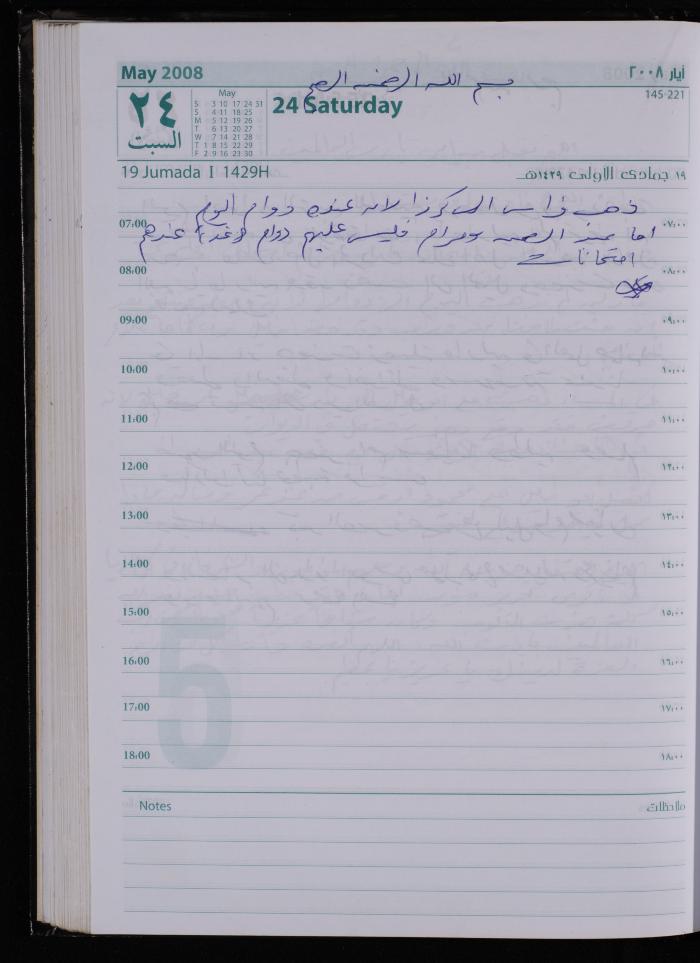 May 2008
أيار ٢٠٠٨
بسم الله الرحمن الرحيم
145-221
٢٤
السبت
May
S 3 10 17 24 31
S 4 11 18 25
M 5 12 19 26
T 6 13 20 27
W 7 14 21 28
T 1 8 15 22 29
F 2 9 16 23 30
24 Saturday
19 Jumada I 1429H
١٩ جمادى الأولى ١٤٢٩هـ
ذهب لانه عنده دوام اليوم
07:00 ٠٧:٠٠
اما فليس عليهم دوام (غدا) عندهم
امتحانات
08:00 ٠٨:٠٠
09:00 ٠٩:٠٠
10:00 ١٠:٠٠
11:00 ١١:٠٠
12:00 ١٢:٠٠
13:00 ١٣:٠٠
14:00 ١٤:٠٠
15:00 ١٥:٠٠
16:00 ١٦:٠٠
17:00 ١٧:٠٠
18:00 ١٨:٠٠
5
Notes ملاحظات